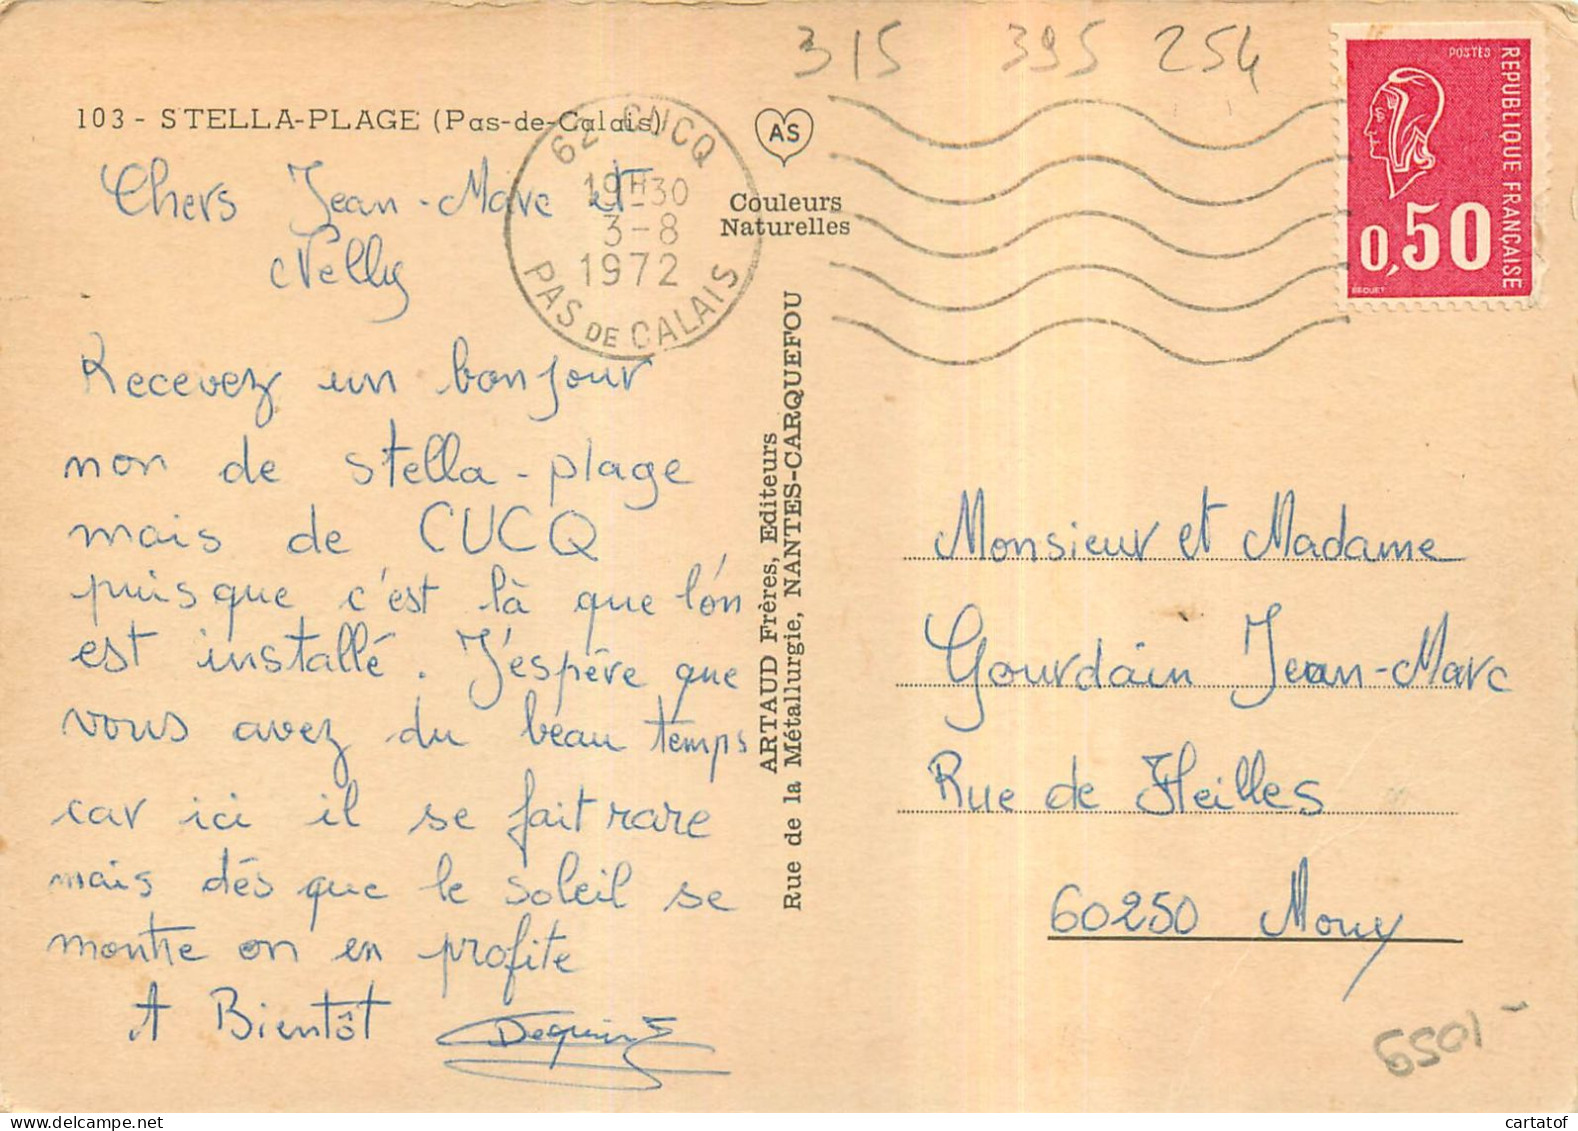 315 395 254
103 - STELLA-PLAGE (Pas-de-Calais)
62 CUCQ
19H30
3-8
1972
PAS DE CALAIS
AS
Couleurs
Naturelles
POSTES
REPUBLIQUE FRANÇAISE
0,50
BEQUET
Chers Jean-Marc et
Nelly
Recevez un bonjour
non de stella-plage
mais de CUCQ
puisque c'est là que l'on
est installé. J'espère que
vous avez du beau temps
car ici il se fait rare
mais dés que le soleil se
montre on en profite
A Bientôt
ARTAUD Frères, Editeurs
Rue de la Métallurgie, NANTES-CARQUEFOU
Monsieur et Madame
Gourdain Jean-Marc
Rue de Heilles
60250 Mouy
www.cartatof.com
cartatof